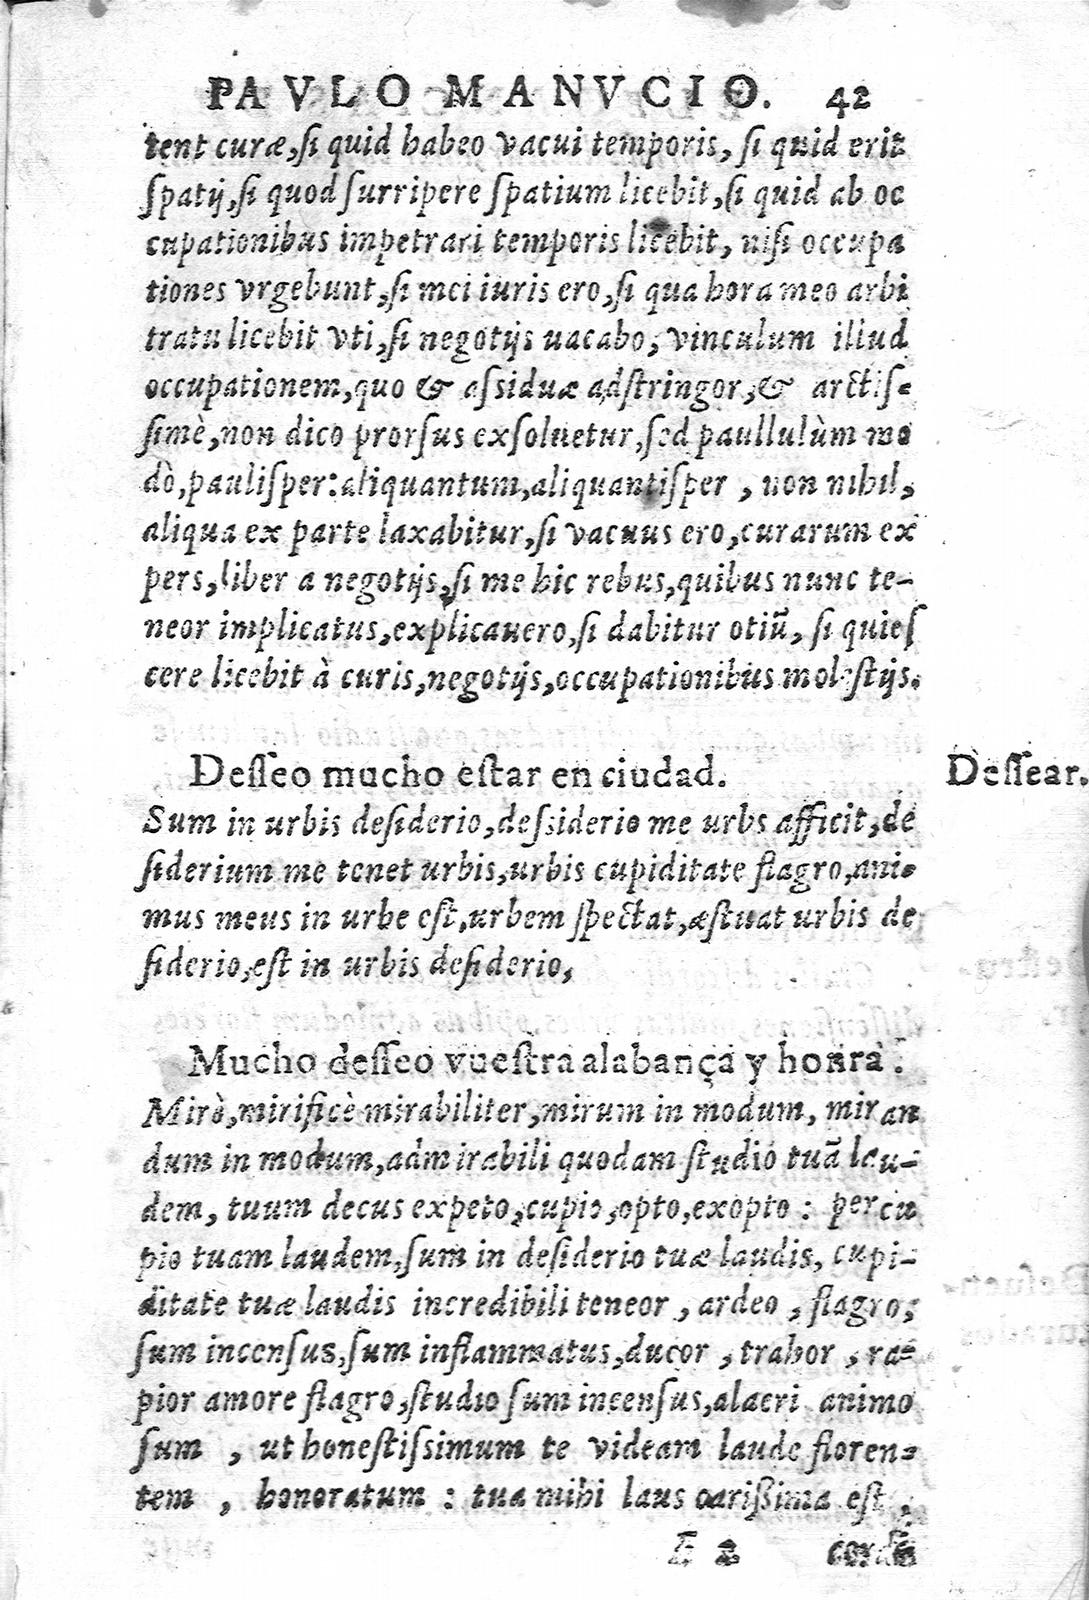 PAVLO MANVCIO. 42
tent curæ, ſi quid habeo vacui temporis, ſi quid erit
ſpatij, ſi quod ſurripere ſpatium licebit, ſi quid ab oc
cupationibus impetrari temporis licebit, niſi occupa
tiones vrgebunt, ſi mei iuris ero, ſi qua hora meo arbi
tratu licebit vti, ſi negotijs uacabo, vinculum illud
occupationem, quo & aſſiduæ adſtringor, & arctiſ-
ſimè, non dico prorſus exſoluetur, ſed paullulùm mo
dò, pauliſper: aliquantum, aliquantiſper, non nihil,
aliqua ex parte laxabitur, ſi vacuus ero, curarum ex
pers, liber a negotijs, ſi me hic rebus, quibus nunc te-
neor implicatus, explicauero, ſi dabitur otiũ, ſi quieſ
cere licebit à curis, negotijs, occupationibus moleſtijs.
Deſſeo mucho eſtar en ciudad. Deſſear.
Sum in urbis deſiderio, deſsiderio me urbs afficit, de
ſiderium me tenet urbis, urbis cupiditate flagro, ani-
mus meus in urbe eſt, urbem ſpectat, æſtuat urbis de
ſiderio, eſt in urbis deſiderio,
Mucho deſſeo vueſtra alabança y honra.
Mirò, mirificè mirabiliter, mirum in modum, miran
dum in modum, admirabili quodam ſtudio tuã lau-
dem, tuum decus expeto, cupio, opto, exopto: percu
pio tuam laudem, ſum in deſiderio tuæ laudis, cupi-
ditate tuæ laudis incredibili teneor, ardeo, flagro,
ſum incenſus, ſum inflammatus, ducor, trahor, ra-
pior amore flagro, ſtudio ſum incenſus, alacri animo
ſum, ut honeſtiſsimum te videam laude floren-
tem, honoratum: tua mihi laus carißima eſt,